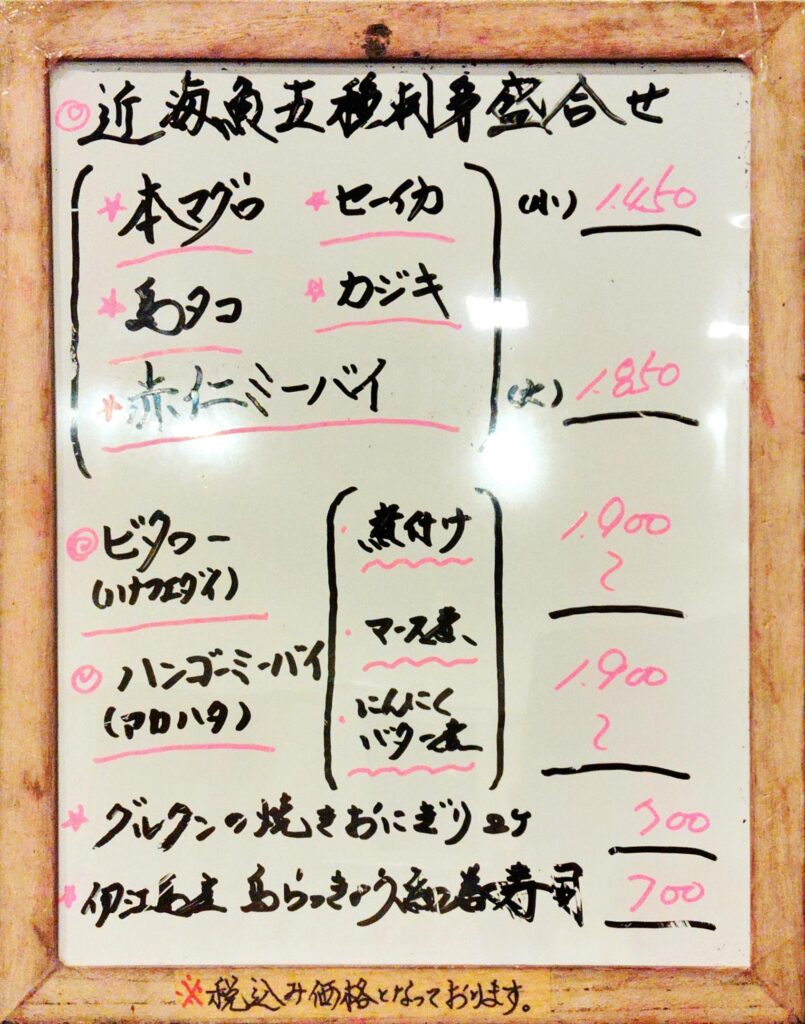 ◎近海魚五種刺身盛合せ
★本マグロ ★セーイカ (小) 1.450
★島タコ ★カジキ
★赤仁ミーバイ (大) 1.850
◎ビタロー ・煮付け 1.900
(ハナフエダイ) 〜
・マース煮
◎ハンゴーミーバイ 1.900
(アロハタ) ・にんにく 〜
バター煮
★グルクンの焼きおにぎり2ケ 500
★伊江島産 島らっきょう 巻寿司 700
※税込み価格となっております。